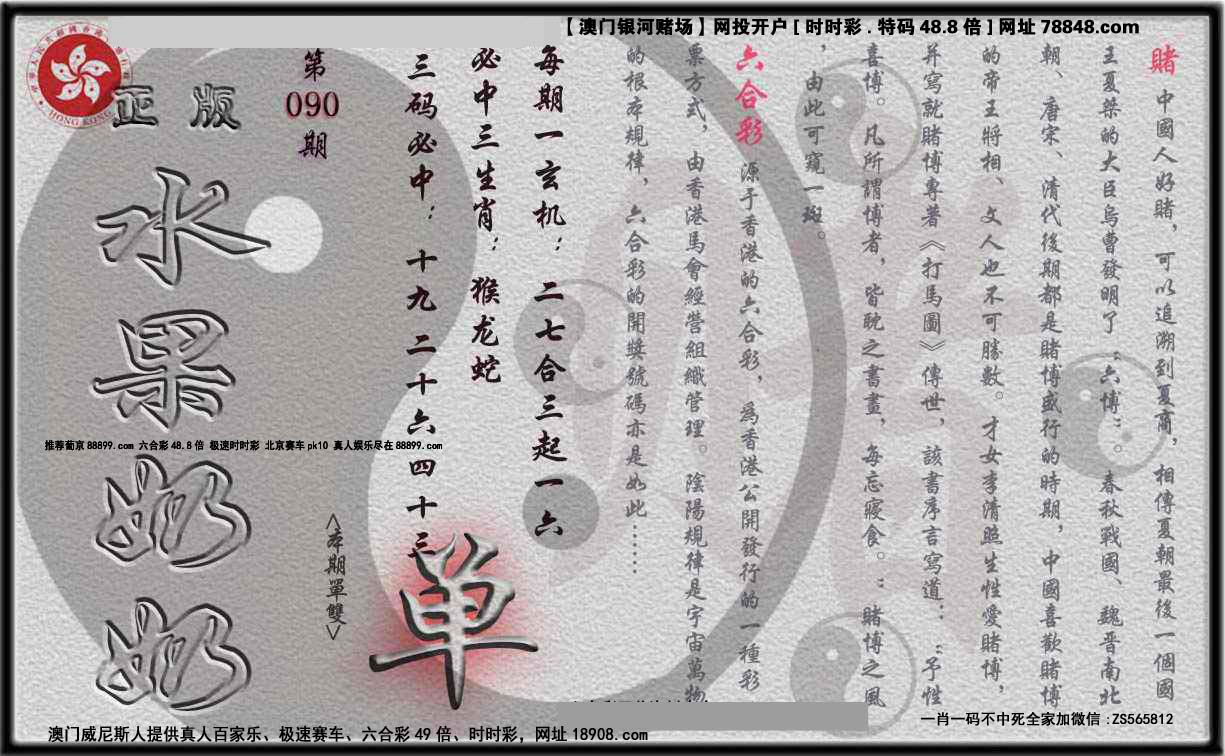 【澳门银河赌场】网投开户 [ 时时彩 . 特码 48.8 倍 ] 网址 78848.com
HONG KONG
正版
水果奶奶
第
090
期
推荐葡京88899.com 六合彩48.8倍 极速时时彩 北京赛车pk10 真人娱乐尽在88899.com
賭 中國人好賭，可以追溯到夏商，相傳夏朝最後一個國
王夏桀的大臣烏曹發明了“六博”。春秋戰國、魏晋南北
朝、唐宋、清代後期都是賭博盛行的時期，中國喜歡賭博
的帝王將相、文人也不可勝數。才女李清照生性愛賭博，
并寫就賭博專著《打馬圖》傳世，該書序言寫道：“予性
喜博。凡所謂博者，皆耽之書畫，每忘寢食。”賭博之風
，由此可窺一斑。
六合彩 源于香港的六合彩，為香港公開發行的一種彩
票方式，由香港馬會經營組織管理。陰陽規律是宇宙萬物
的根本規律，六合彩的開獎號碼亦是如此……
每期一玄机：二七合三起一六
必中三生肖：猴龙蛇
三码必中：十九二十六四十三
<本期單雙>
单
一肖一码不中死全家加微信:ZS565812
澳门威尼斯人提供真人百家乐、极速赛车、六合彩49倍、时时彩，网址18908.com